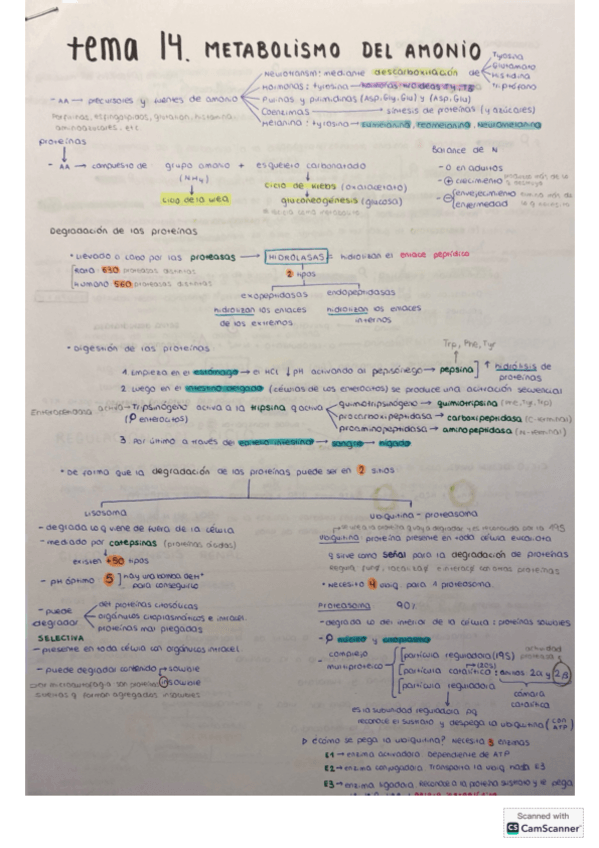 tema 14. METABOLISMO DEL AMONIO
Tyrosina
Glutamato
Histidina
Triptófano
Neurotransm: mediante descarboxilación de
Hormonas: tyrosina → hormonas tiroideas T4, T3
- AA → precursores y fuentes de amonio
Purinas y pirimidinas (Asp, Gly, Glu) y (Asp, Glu)
Coenzimas → síntesis de proteínas (y azúcares)
Melanina: tyrosina → eumelanina, feomelanina, neuromelanina
proteínas
- AA → compuesto de grupo amonio + esqueleto carbonatado
(NH4)
ciclo de la urea
ciclo de Krebs (oxalacetato)
gluconeogénesis (glucosa)
Balance de N
- 0 en adultos
- + crecimiento
- envejecimiento
enfermedad
Degradación de las proteínas
• Llevado a cabo por las proteasas → HIDROLASAS = hidrolizan el enlace peptídico
Rata: 630 proteasas distintas
Humano 560 proteasas distintas
2 tipos
exopeptidasas endopeptidasas
hidrolizan los enlaces hidrolizan los enlaces
de los extremos internos
• Digestión de las proteínas
Trp, Phe, Tyr
1. Empieza en el estómago → el HCl ↓pH activando al pepsinógeno → pepsina ↑ hidrólisis de
proteínas
2. Luego en el intestino delgado (células de los enterocitos) se produce una activación secuencial
Enterokinasa activa → Tripsinógeno activa a la tripsina q activa
quimotripsinógeno → quimotripsina (Phe, Tyr, Trp)
(enterocitos)
procarboxipeptidasa → carboxipeptidasa (C-terminal)
proaminopeptidasa → aminopeptidasa (N-terminal)
3. Por último a través del epitelio intestino → sangre → hígado
• De forma que la degradación de las proteínas puede ser en 2 sitios:
Lisosoma
- degrada lo q viene de fuera de la célula
- mediado por catepsinas (proteínas ácidas)
existen +50 tipos
- pH óptimo 5 hay una bomba de H+
para conseguirlo
- puede degradar
det proteínas citosólicas
orgánulos citoplasmáticos e intracel.
proteínas mal plegadas
SELECTIVA
- presente en toda célula con orgánulos intracel
- puede degradar contenido → soluble
insoluble
Ubiquitina - proteasoma
Ubiquitina: proteína presente en toda célula eucariota
q sirve como señal para la degradación de proteínas
• Necesito 4 ubiq. para 1 proteasoma.
Proteasoma 90%
- degrada lo del interior de la célula: proteínas solubles
- núcleo y citoplasma
- complejo multiproteico
partícula reguladora (19S)
actividad
proteasas
partícula catalítica (20S): anillos 2α y 2β
partícula reguladora
cámara
catalítica
es la subunidad reguladora pq
reconoce el sustrato y despega la ubiquitina (con ATP)
▷ ¿Cómo se pega la ubiquitina? Necesita 3 enzimas
E1 → enzima activadora. Dependiente de ATP
E2 → enzima conjugadora. Transporta la ubiq hasta E3
E3 → enzima ligadora. Reconoce a la proteína sustrato y le pega
Scanned with
CS CamScanner